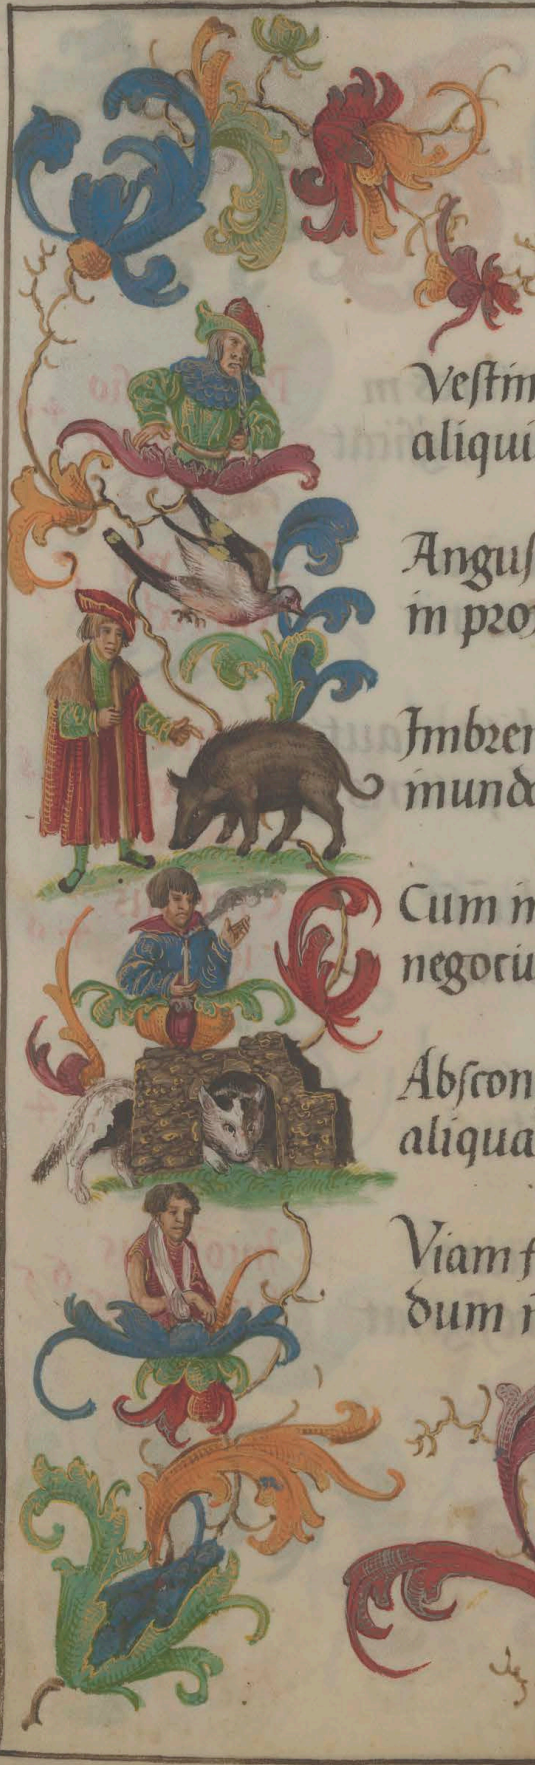 Vestim
aliqui
Angus
in prox
Imbrem
mundo
Cum in
negociu
Abscon
aliqua
Viam f
dum n